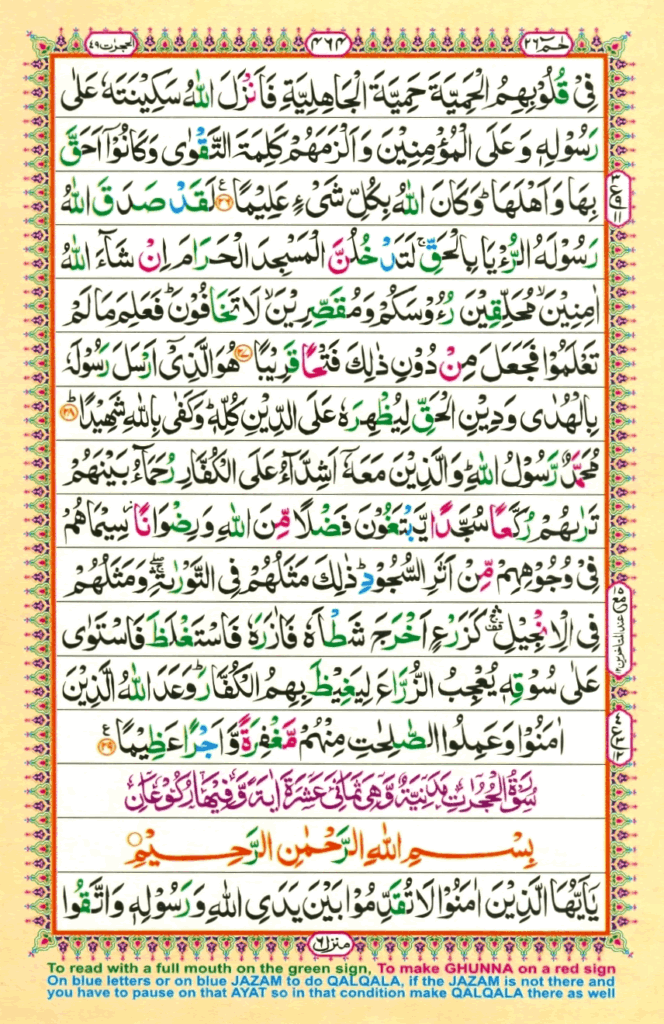 حٰمٓ ٢٦
٤٦٤
الحجرٰت ٤٩
فِیْ قُلُوْبِهِمُ الْحَمِیَّةَ حَمِیَّةَ الْجَاهِلِیَّةِ فَاَنْزَلَ اللّٰهُ سَكِیْنَتَهٗ عَلٰی
رَسُوْلِهٖ وَعَلَی الْمُؤْمِنِیْنَ وَاَلْزَمَهُمْ كَلِمَةَ التَّقْوٰی وَكَانُوْۤا اَحَقَّ
بِهَا وَاَهْلَهَا ؕ وَكَانَ اللّٰهُ بِكُلِّ شَیْءٍ عَلِیْمًا ۟۲۶ لَقَدْ صَدَقَ اللّٰهُ
رَسُوْلَهُ الرُّءْیَا بِالْحَقِّ ۚ لَتَدْخُلُنَّ الْمَسْجِدَ الْحَرَامَ اِنْ شَآءَ اللّٰهُ
اٰمِنِیْنَ ۙ مُحَلِّقِیْنَ رُءُوْسَكُمْ وَمُقَصِّرِیْنَ ۙ لَا تَخَافُوْنَ ؕ فَعَلِمَ مَا لَمْ
تَعْلَمُوْا فَجَعَلَ مِنْ دُوْنِ ذٰلِكَ فَتْحًا قَرِیْبًا ۟۲۷ هُوَ الَّذِیْۤ اَرْسَلَ رَسُوْلَهٗ
بِالْهُدٰی وَدِیْنِ الْحَقِّ لِیُظْهِرَهٗ عَلَی الدِّیْنِ كُلِّهٖ ؕ وَكَفٰی بِاللّٰهِ شَهِیْدًا ؕ۲۸
مُحَمَّدٌ رَّسُوْلُ اللّٰهِ ؕ وَالَّذِیْنَ مَعَهٗۤ اَشِدَّآءُ عَلَی الْكُفَّارِ رُحَمَآءُ بَیْنَهُمْ
تَرٰىهُمْ رُكَّعًا سُجَّدًا یَّبْتَغُوْنَ فَضْلًا مِّنَ اللّٰهِ وَرِضْوَانًا ؗ سِیْمَاهُمْ
فِیْ وُجُوْهِهِمْ مِّنْ اَثَرِ السُّجُوْدِ ؕ ذٰلِكَ مَثَلُهُمْ فِی التَّوْرٰىةِ ۛۖۚ وَمَثَلُهُمْ
فِی الْاِنْجِیْلِ ۛ۫ۚ كَزَرْعٍ اَخْرَجَ شَطْاَهٗ فَاٰزَرَهٗ فَاسْتَغْلَظَ فَاسْتَوٰی
عَلٰی سُوْقِهٖ یُعْجِبُ الزُّرَّاعَ لِیَغِیْظَ بِهِمُ الْكُفَّارَ ؕ وَعَدَ اللّٰهُ الَّذِیْنَ
اٰمَنُوْا وَعَمِلُوا الصّٰلِحٰتِ مِنْهُمْ مَّغْفِرَةً وَّاَجْرًا عَظِیْمًا ۟۲۹
سُوْرَةُ الْحُجُرٰتِ مَدَنِیَّةٌ وَّهِیَ ثَمَانِیَ عَشَرَةَ اٰیَةً وَّفِیْهَا رُكُوْعَانِ
بِسْمِ اللّٰهِ الرَّحْمٰنِ الرَّحِیْمِ
یٰۤاَیُّهَا الَّذِیْنَ اٰمَنُوْا لَا تُقَدِّمُوْا بَیْنَ یَدَیِ اللّٰهِ وَرَسُوْلِهٖ وَاتَّقُوا
منزل ٦
To read with a full mouth on the green sign, To make GHUNNA on a red sign
On blue letters or on blue JAZAM to do QALQALA, if the JAZAM is not there and
you have to pause on that AYAT so in that condition make QALQALA there as well